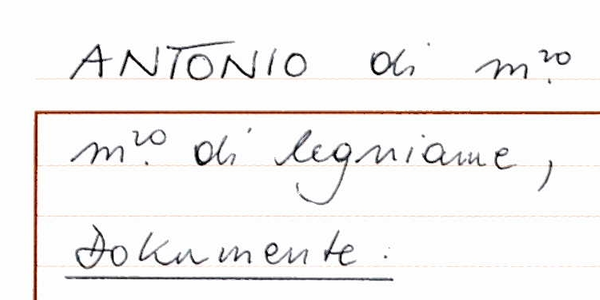 ANTONIO di m.ro
m.ro di legniame,
Dokumente.